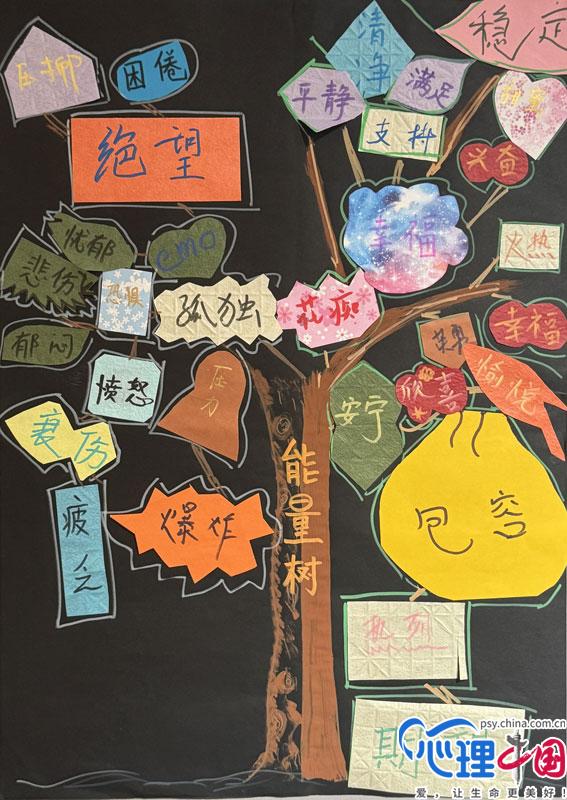 压抑
困倦
绝望
忧郁
emo
悲伤
恐惧
孤独
郁闷
愤怒
压力
哀伤
疲乏
爆炸
能量树
稳定
清净
平静
满足
甜蜜
支持
兴奋
幸福
火热
花痴
幸福
安宁
欣喜
愉悦
包容
热烈
期
psy.china.com.cn
心理中国
爱，让生命更美好！